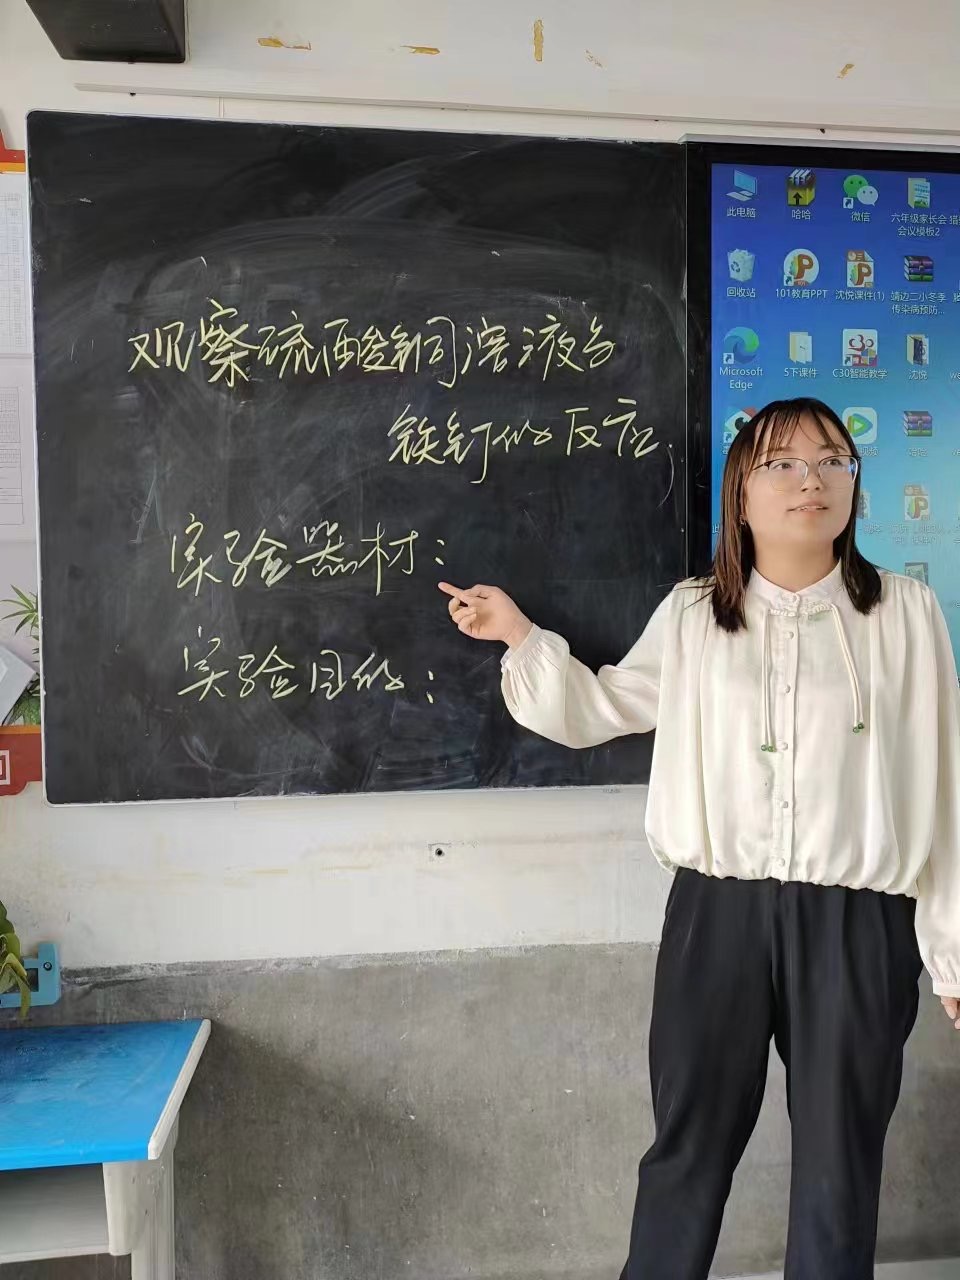 观察硫酸铜溶液与
铁钉的反应.
实验器材：
实验目的：
此电脑
哈哈
微信
六年级家长会
会议模板2
回收站
101教育PPT
沈悦课件(1)
靖边二小冬季
传染病预防...
Microsoft
Edge
5下课件
C30智能教学
沈悦
视频
哈哈